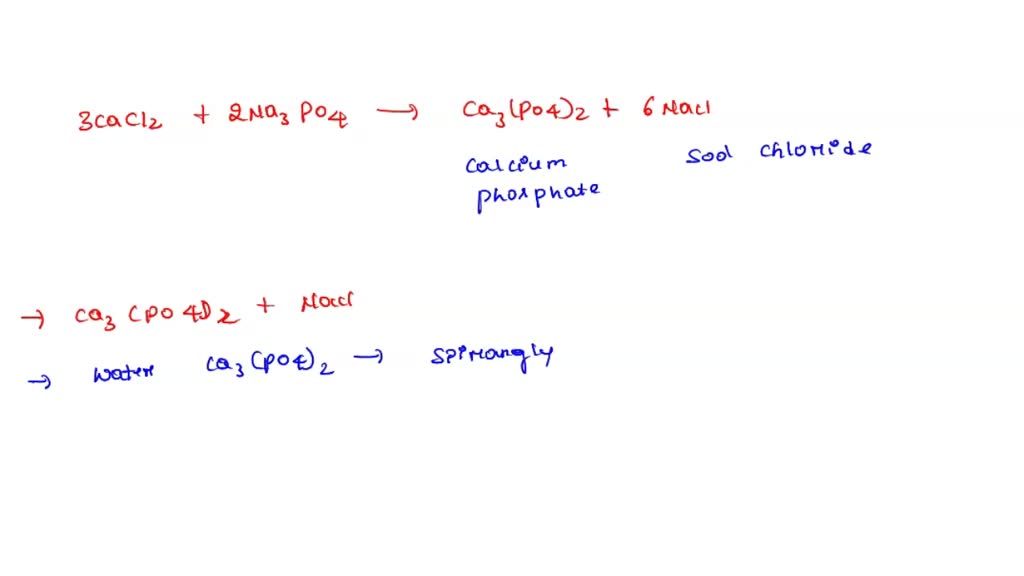 3CaCl2 + 2Na3PO4 → Ca3(PO4)2 + 6NaCl
calcium phosphate
sod chloride
→ Ca3(PO4)2 + NaCl
→ water Ca3(PO4)2 → spirangly